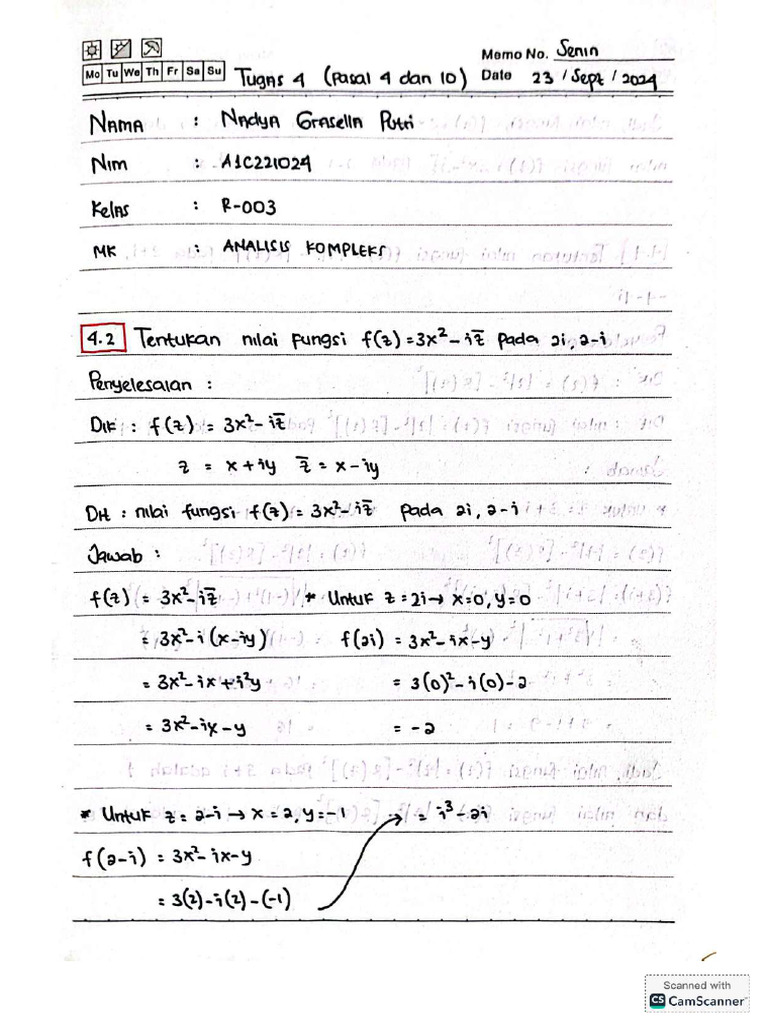 Memo No. Senin
Mo Tu We Th Fr Sa Su Tugas 4 (Pasal 4 dan 10) Date 23 / Sept / 2024
NAMA : NADYA GRASELLA PUTRI
NIM : A1C221024
Kelas : R-003
MK : ANALISIS KOMPLEKS
4.2 Tentukan nilai fungsi f(z) = 3x² - iz̅ pada 2i, 2-i
Penyelesaian :
Dik : f(z) = 3x² - iz̅
z = x + iy z̅ = x - iy
Dit : nilai fungsi f(z) = 3x² - iz̅ pada 2i, 2-i
Jawab :
f(z) = 3x² - iz̅ * Untuk z = 2i → x=0, y=0
= 3x² - i (x - iy) f(2i) = 3x² - ix - y
= 3x² - ix + i²y = 3(0)² - i(0) - 2
= 3x² - ix - y = -2
* Untuk z = 2-i → x = 2, y = -1 = i³ - 2i
f(2-i) = 3x² - ix - y
= 3(2) - i(2) - (-1)
Scanned with
CS CamScanner